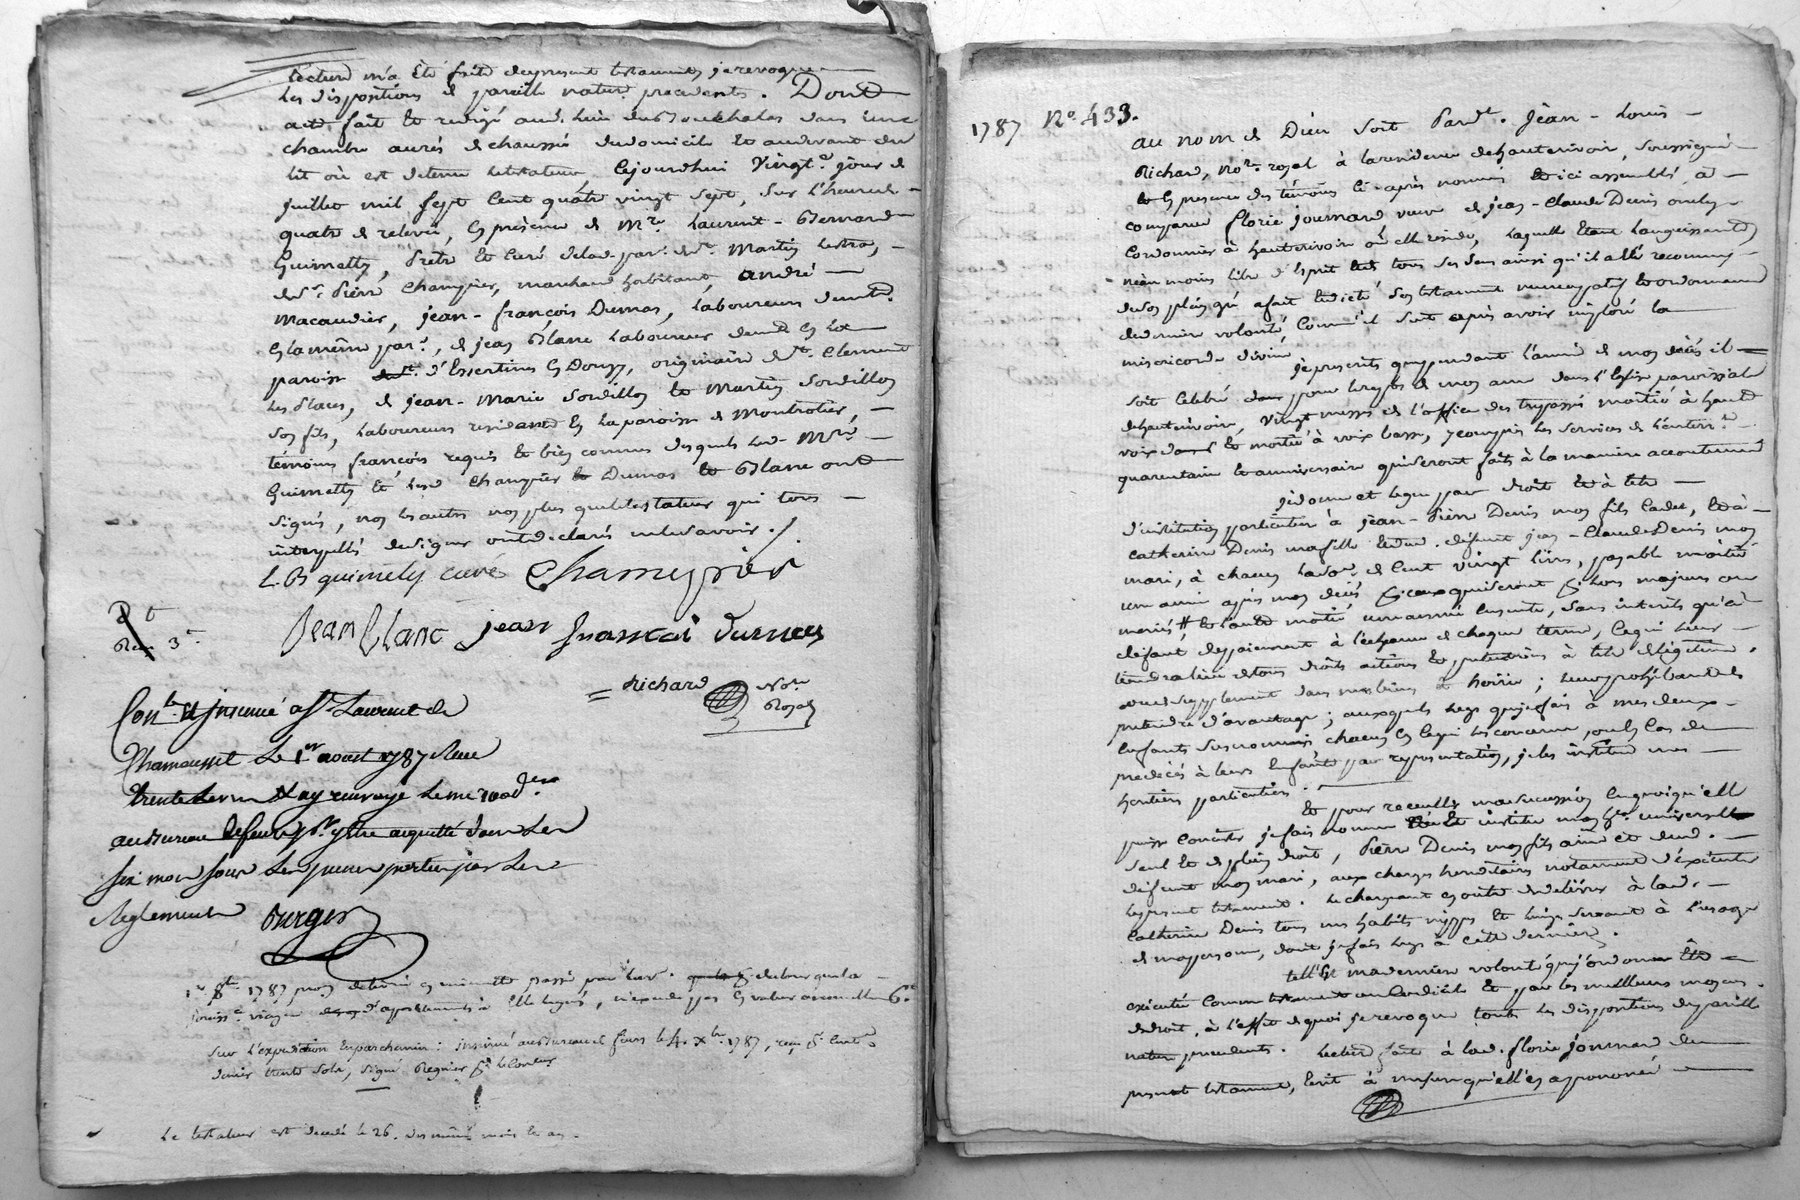 Lecture m'a été faite du present testament, je revoque
les dispositions de pareille nature precedentes. Dont
acte, fait et redigé aud. lieu du Bouchalas dans une
chambre au rés de chaussé du domicile et au devant du
lit où est detenu le testateur, cejourdhui vingte. jour de
juillet mil sept cent quatre vingt sept, sur l'heure de
quatre de relevée, en présence de Mre. Laurent-Bernard
Guimetty, Prêtre et Curé de lad. par. de St. Martin Lestra,
de Sr. Pierre Champier, marchand habitant, andré
Macaudier, jean-françois Dumas, laboureurs demt.
en la même par., de jean Blanc laboureur demt. en la
paroisse d'Essertines en Donzy, originaire de St. Clement
les Places, de jean-Marie Sordillon et Martin Sordillon
son fils, laboureurs residant en la paroisse de Montrotier,
témoins françois requis et bien connus desquels led. Mre.
Guimetty et led. Champier et Dumas et Blanc ont
signés, non les autres non plus que le testateur qui tous
interpellés de signer ont declarés ne le savoir ./.
L. B guimety curé Champier
Jean blanc jean francoi dumas
Rt 3
Richard Nore Royal
Conlé. et insinué a St. Laurent de
Chamousset le 1er aout 1787 Reçu
trente
au Bureau
six mois sous les peines portées par les
Reglements Burger
1787
sur l'expedition en parchemin: insinué au Bureau de feurs le 4. Xbre. 1787, reçu
trente sols, signé Regnier
Le testateur est decedé le 26. des même mois et an.
1787 No. 433.
Au nom de Dieu soit Pardt. Jean-Louis
Richard, Nore. royal à la residence de hauterivoir, soussigné
et en presence des témoins ci-après nommés et ici assemblés, a
comparue florie Journard veuve de jean-Claude Denis onley
Cordonnier à hauterivoir où elle reside, laquelle étant languissante
néan moins libre d'Esprit et de tous ses sens ainsi qu'il a été reconnu
de son plein gré a fait et dicté son testament nuncupatif et ordonnance
de derniere volonté comme il suit après avoir imploré la
misericorde divine
je prescris que pendant l'année de mon décès il
soit celebré dans pour le repos de mon ame dans l'Eglise paroissiale
de hauterivoir, vingt messes de l'office des trepassés moitié à haute
voix et moitié à voix basse, y compris les services de l'enterrt.
quarantain et anniversaire qui seront faits à la maniere accoutumée
je donne et legue par droit et à titre
d'institution particuliere à jean-Pierre Denis mon fils cadet, et à
Catherine Denis ma fille et dud. defunt jean-Claude Denis mon
mari, à chacun la some. de cent vingt livres, payable moitié
un an après mon décès
mariés et l'autre moitié une année ensuite, sans interêts qu'à
defaut de payement à l'echeance de chaque terme, ce qui leur
tiendra lieu de tous droits actions et pretentions à titre de légitime
ou de supplement dans mes biens et hoirie; leur prohibant de
pretendre d'avantage; auxquels legs que je fais à mes deux
Enfants susnommés chacun en ce qui les concerne, ou en cas de
predécés à leurs Enfants par representation, je les institue mes
heritiers particuliers.
Et pour recueillir ma succession en quoi qu'elle
puisse consister je fais nomme et institue mon her. universelle
seul et de plein droit, Pierre Denis mon fils ainé et dud.
defunt mon mari, aux charges hereditaires notamment d'éxécuter
le present testament. le chargeant en outre de delivrer à lad.
Catherine Denis tous mes habits nippes et linge servant à l'usage
de ma personne, dont je fais legs à cette derniere.
telle est ma derniere volonté que j'ordonne être
exécutée comme testament ou Codicile et par les meilleurs moyens
de droit, à l'effet de quoi je revoque toutes les dispositions de pareille
nature precedentes. Lecture faite à lad. florie Journard du
present testament, Ecrit à mesure qu'elle l'a prononcé